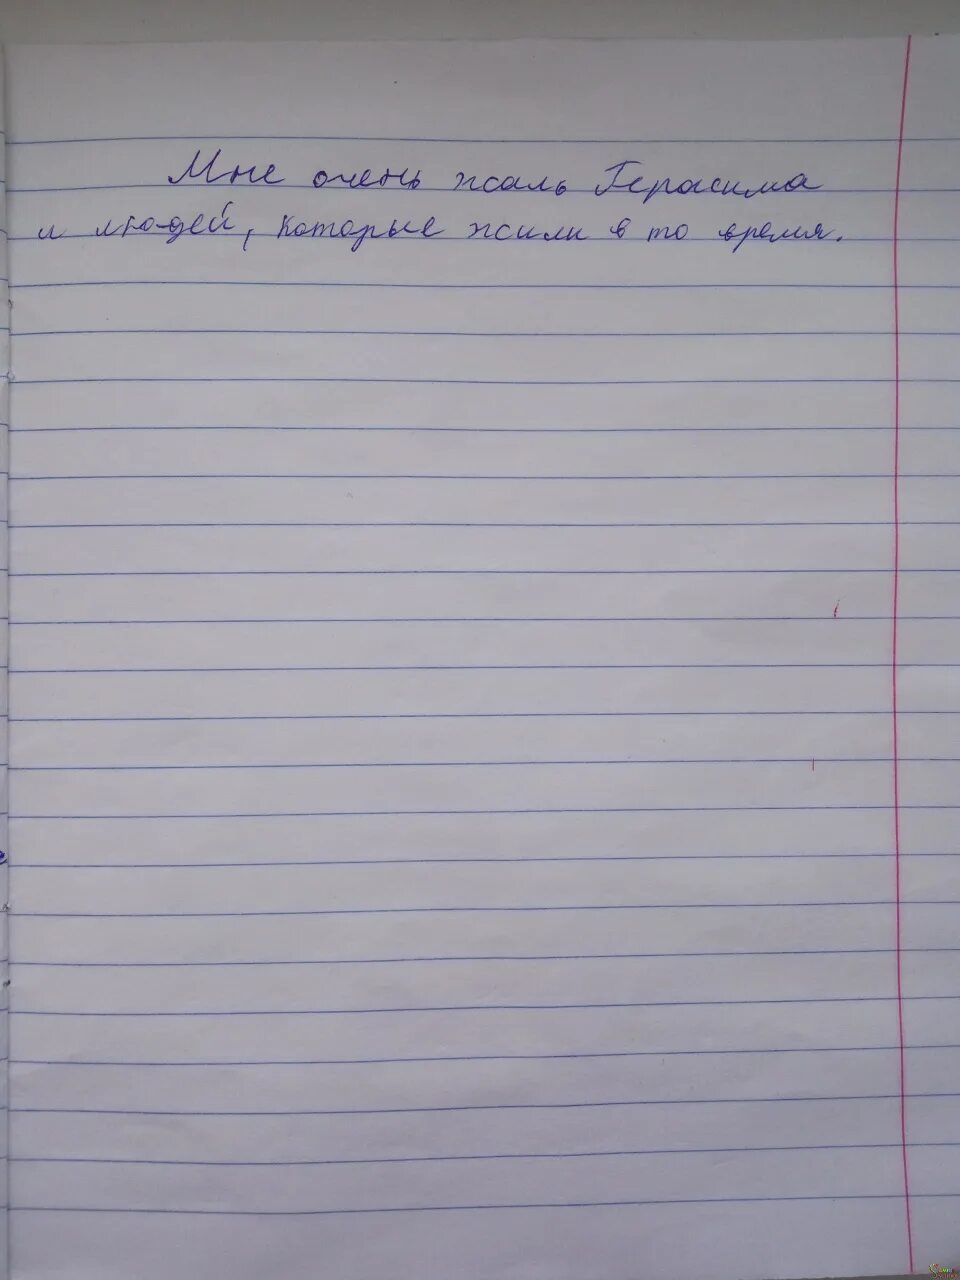 Мне очень жаль Герасима
и людей, которые жили в то время.